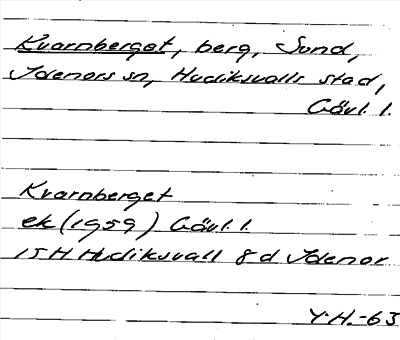 Kvarnberget, berg, Sund,
Idenors sn, Hudiksvalls stad,
Gävl. l.
Kvarnberget
ek (1959) Gävl. l.
15H Hudiksvall 8d Idenor
Y.H.-63